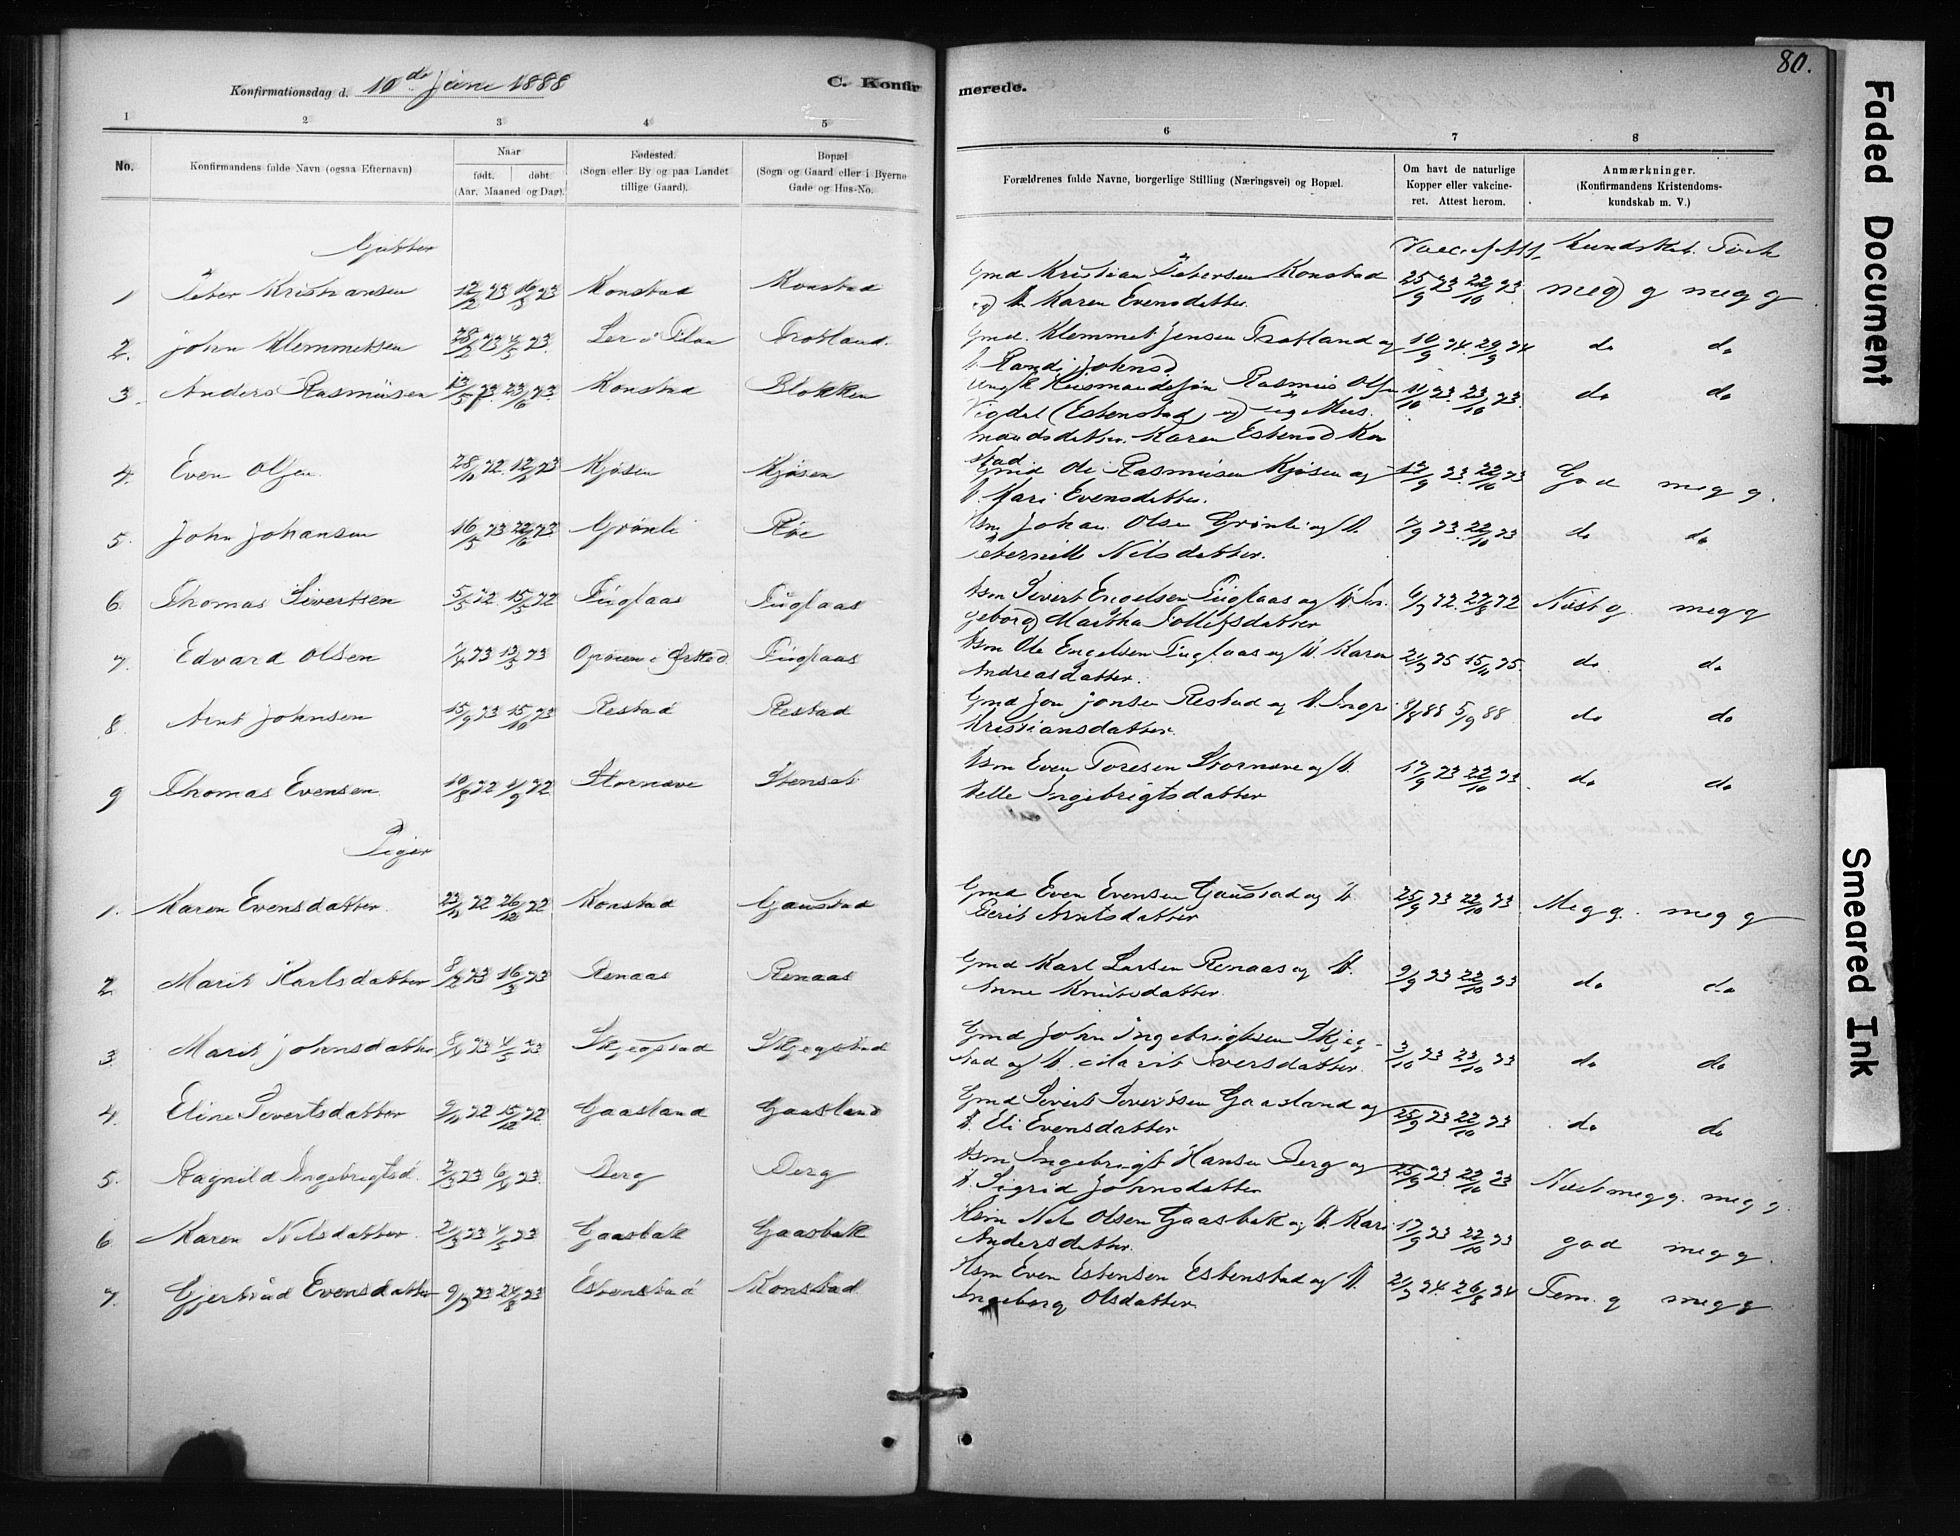 80.
Konfirmationsdag d. 10de Juni 1888
C. Konfirmerede.
1 2 3 4 5 6 7 8
No.
Konfirmandens fulde Navn (ogsaa Efternavn)
Naar
født. døbt.
(Aar, Maaned og Dag).
Fødested.
(Sogn eller By og paa Landet
tillige Gaard).
Bopæl
(Sogn og Gaard eller i Byerne
Gade og Hus-No.
Forældrenes fulde Navne, borgerlige Stilling (Næringsvei) og Bopæl.
Om havt de naturlige
Kopper eller vakcine-
ret. Attest herom.
Anmærkninger.
(Konfirmandens Kristendoms-
kundskab m. V.)
Gutter
Kundskab.
1 Peter Kristiansen 12/2 73 16/3 73 Konstad Konstad Gmd Kristian Petersen Konstad 25/9 73 22/10 73. meg g meg g
Karen Evensdatter
2. John Klemmetsen Ler i Flaa Gmd. Klemmet Jensen og 10/9 74. 29/9 74 do do
Randi Johnsd
3. Anders Rasmusen 13/5 73. 23/6 73. Konstad Blokken Ungk Husmandssøn Rasmus Olsen 11/10 73. 23/10 73. do do
Vigdal (Estenstad) og Pig Hus
mandsdatter. Karen Estensd Kon
stad
4. Even Olsen 28/11 72. 12/1 73 Kjøsen Kjøsen Gmd Ole Rasmusen Kjøsen og 12/9 73. 22/10 73 God meg g.
H. Mari Evensdatter.
5. John Johansen 16/5 73 22/6 73 Grønli Røe Hsm Johan Olsen Grønli og H. 7/9 73. 22/10 73 do do
Pernille Nilsdatter.
6. Thomas Sivertsen 5/5 72. 15/5 72 Fuglaas Fuglaas Hsm Sivert Engelsen Fuglaas og H. In
geborg Martha Tollefsdatter
meg g
7. Edvard Olsen Fuglaas Hsm Ole Engelsen Fuglaas og H. Karen 15/11 75. do do
Andreasdatter.
8. Arnt Johnsen 15/9 73 15/10 73 Restad Restad Gmd Jon Jonsen Restad og H. Ingri 5/9 88 do do
Kristiansdatter.
9 Thomas Evensen. 10/8 72 Stornæve Stenset Hsm Even Toresen Stornæve og H. 17/9 73 22/10 73 do do
Ingebrigtsdatter
Piger
1. Karen Evensdatter 23/11 72 26/12 72 Konstad Gaustad Gmd Even Evensen Gaustad og H 25/9 73 22/10 73. Meg g. meg g
Berit Arntsdatter
2. Marit Karlsdatter 8/2 73 16/3 73 Renaas Renaas Gmd Karl Larsen Renaas og H. 9/9 73 22/10 73 do do
Anne Knutsdatter.
3. Marit Johnsdatter Skjegstad Skjegstad Gmd John Ingebrigtsen Skjeg- 3/10 73 23/10 73 do do
stad og H. Marit Iversdatter.
4. Eline Sivertsdatter 9/11 72 15/12 72 Gaasland Gaasland Gmd Sivert Sivertsen Gaasland og 25/9 73 22/10 73 do do
H. Eli Evensdatter
5. Ragnild Ingebrigtsd. Berg Berg Hsm Ingebrigt Hansen Berg og 25/9 73. 22/10 73 Næst meg g. meg g.
H. Sigrid Johnsdatter
6. Karen Nilsdatter Gaasbak Gaasbak Hsm Nils Olsen Gaasbak og H. Kari 17/9 73 22/10 73 god meg g.
Andersdatter.
7. Gjertrud Evensdatter 24/8 73 Estenstad Konstad Hsm Even Estensen Estenstad og H. 26/8 74 Tem. g meg g
Ingeborg Olsdatter.
Faded Document
Smeared Ink